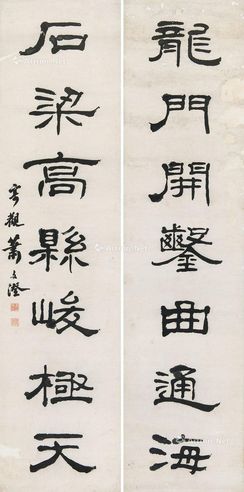 龍門開鑿曲通海
石梁高縣峻極天
觀蕭文澄